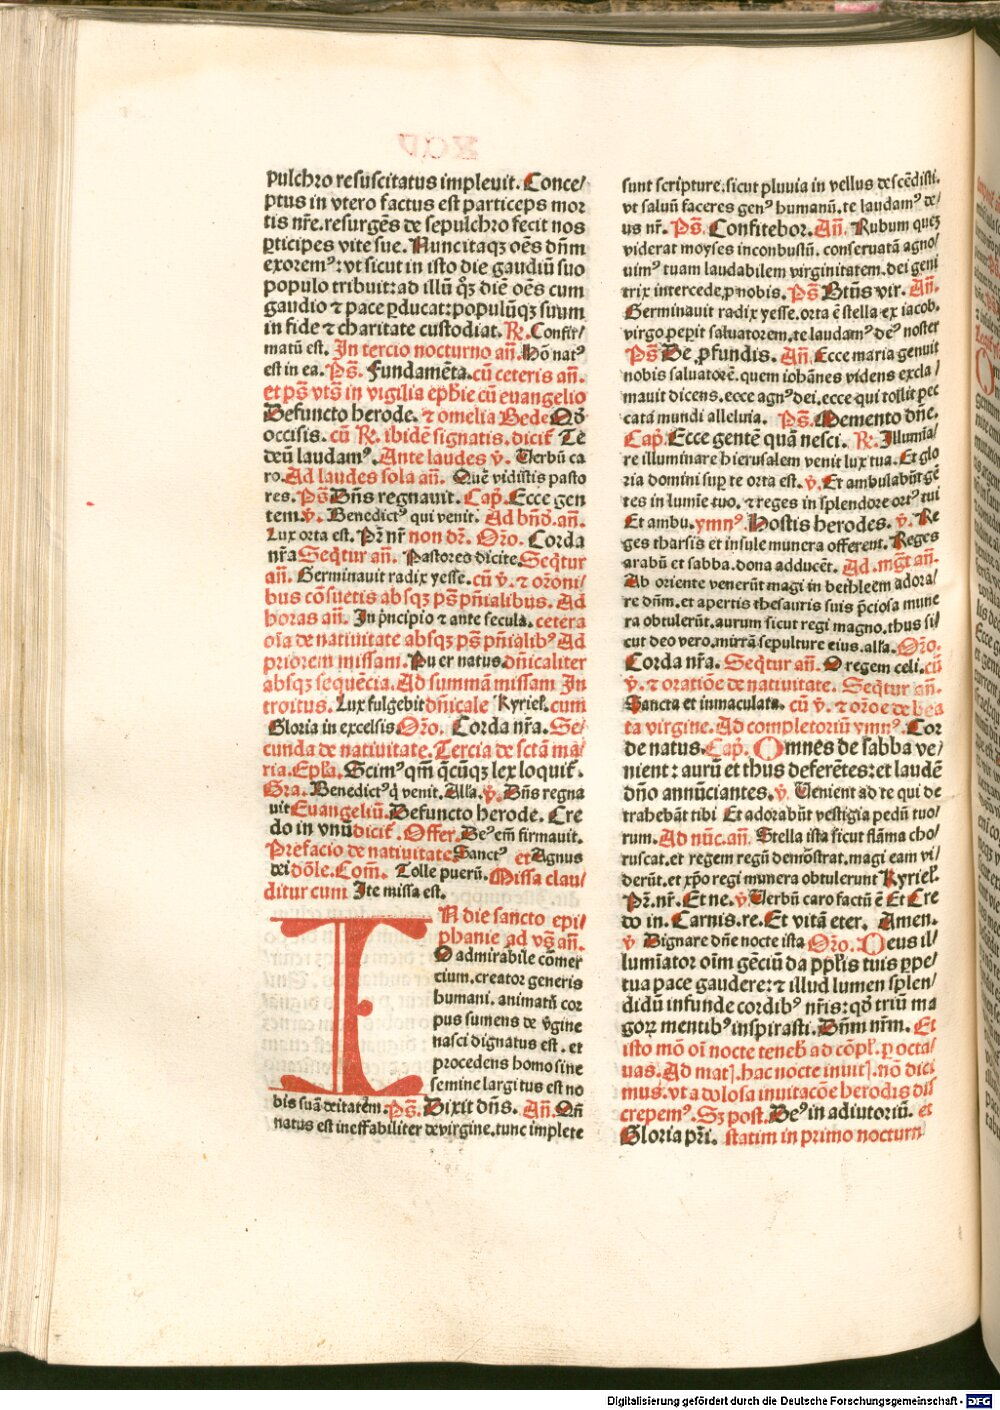 pulchro resuscitatus impleuit. Conce/
ptus in vtero factus est particeps mor
tis nr̄e. resurgēs de sepulchro fecit nos
ꝑticipes vite sue. Nunc itaqꝫ oēs dn̄m
exorem⁹: vt sicut in isto die gaudiū suo
populo tribuit: ad illū qꝫ diē oēs cum
gaudio ⁊ pace ꝑducat: populūqꝫ suum
in fide ⁊ charitate custodiat. R̄. Confir/
matū est. In tercio nocturno an̄. Hō nat⁹
est in ea. Ps̄. Fundamēta. cū ceteris an̄.
et ps̄ vts̄ in vigilia eph̄ie cū euangelio
Defuncto herode. ⁊ omelia Bede Qd̄
occisis. cū R̄. ibidē signatis. dicit̄ Te
deū laudam⁹. Ante laudes v̄. Verbū ca
ro. Ad laudes sola an̄. Quē vidistis pasto
res. Ps̄ Dn̄s regnauit. Cap̄. Ecce gen
tem. v̄. Benedict⁹ qui venit. Ad bn̄d̄. an̄.
Lux orta est. Pr̄ nr̄ non dr̄. Or̄o. Corda
nr̄a Seq̄tur an̄. Pastores dicite. Seq̄tur
an̄. Germinauit radix yesse. cū v̄. ⁊ or̄oni/
bus cōsuetis absqꝫ ps̄ pn̄ialibus. Ad
horas an̄. In pncipio ⁊ ante secula. cetera
oīa de natiuitate absqꝫ ps̄ pn̄ialib⁹ Ad
priorem missam. Puer natus. dn̄icaliter
absqꝫ sequēcia. Ad summā missam In
troitus. Lux fulgebit dn̄icale Kyriel. cum
Gloria in excelsis Or̄o. Corda nr̄a. Se/
cunda de natiuitate. Tercia de sctā ma/
ria. Epl̄a. Scim⁹ qm̄ q̄cūqꝫ lex loquit̄.
Gra. Benedict⁹ q̇ venit. Alla. v̄. Dn̄s regna
uit Euangeliū. Defuncto herode. Cre
do in vnū dicit̄. Offer. De⁹ em̄ firmauit.
Prefacio de natiuitate. Sanct⁹ et Agnus
dei dōle. Com̄. Tolle puerū. Missa clau/
ditur cum Ite missa est.
IN die sancto epi/
phanie ad vs̄ an̄.
O admirabile cōmer
cium. creator generis
humani. animatū cor
pus sumens de v̇gine
nasci dignatus est. et
procedens homo sine
semine largitus est no
bis suā deitatem. Ps̄. Dixit dn̄s. An̄. Qn̄
natus est ineffabiliter de virgine. tunc implete
sunt scripture. sicut pluuia in vellus descēdisti.
vt saluū faceres gen⁹ humanū. te laudam⁹ de/
us nr̄. Ps̄. Confitebor. An̄. Rubum queꝫ
viderat moyses inconbustū. conseruatā agno/
uim⁹ tuam laudabilem virginitatem. dei geni
trix intercede ꝓ nobis. Ps̄ Btūs vir. An̄.
Germinauit radix yesse. orta ē stella ex iacob.
virgo peꝑit saluatorem. te laudam⁹ de⁹ noster
Ps̄ De ꝓfundis. An̄. Ecce maria genuit
nobis saluatorē. quem iohānes videns excla/
mauit dicens. ecce agn⁹ dei. ecce qui tollit pec
cata mundi alleluia. Ps̄. Memento dn̄e.
Cap̄. Ecce gentē quā nesci. R̄. Illumīa/
re illuminare hierusalem venit lux tua. Et glo
ria domini suꝑ te orta est. v̄. Et ambulabūt gē
tes in lumīe tuo. ⁊ reges in splendore ort⁹ tui
Et ambu. ymn⁹. Hostis herodes. v̄. Re
ges tharsis et insule munera offerent. Reges
arabū et sabba. dona adducēt. Ad. mgt̄ an̄.
Ab oriente venerūt magi in bethleem adora/
re dn̄m. et apertis thesauris suis p̄ciosa mune
ra obtulerūt. aurum sicut regi magno. thus si/
cut deo vero. mirrā sepulture eius. alla. Or̄o.
Corda nr̄a. Seq̄tur an̄. O regem celi. cū
v̄. ⁊ oratiōe de natiuitate. Seq̄tur an̄.
Sancta et inmaculata. cū v̄. ⁊ or̄oe de bea
ta virgine. Ad completoriū ymn⁹. Cor
de natus. Cap̄. Omnes de sabba ve/
nient: aurū et thus deferētes: et laudē
dn̄o annūciantes. v̄. Venient ad te qui de
trahebāt tibi Et adorabūt vestigia pedū tuo/
rum. Ad nūc. an̄. Stella ista sicut flāma cho/
ruscat. et regem regū demōstrat. magi eam vi/
derūt. et xp̄o regi munera obtulerunt Kyriel.
Pr̄. nr̄. Et ne. v̄ Verbū caro factū ē Et Cre
do in. Carnis. re. Et vitā eter. Amen.
v̄ Dignare dn̄e nocte ista Or̄o. Deus il/
lumīator oīm gēciū da pp̄lis tuis ꝑpe/
tua pace gaudere: ⁊ illud lumen splen/
didū infunde cordib⁹ nr̄is: qd̄ triū ma
goꝝ mentib⁹ inspirasti. Dn̄m nr̄m. Et
isto mō oī nocte teneb̄ ad cōpl̄. ꝑ octa/
uas. Ad mat]. hac nocte inuit]. nō dici
mus. vt a dolosa inuitacōe herodis dis
crepem⁹. Sꝫ post. De⁹ in adiutoriū. et
Gloria pr̄i. statim in primo nocturn